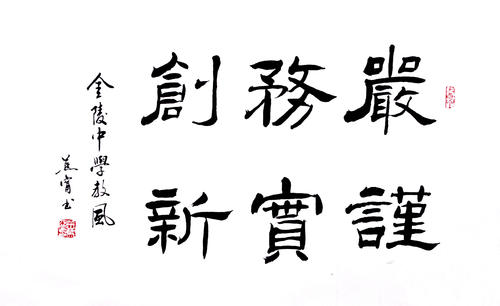 嚴謹
務實
創新
金陵中學教風
书